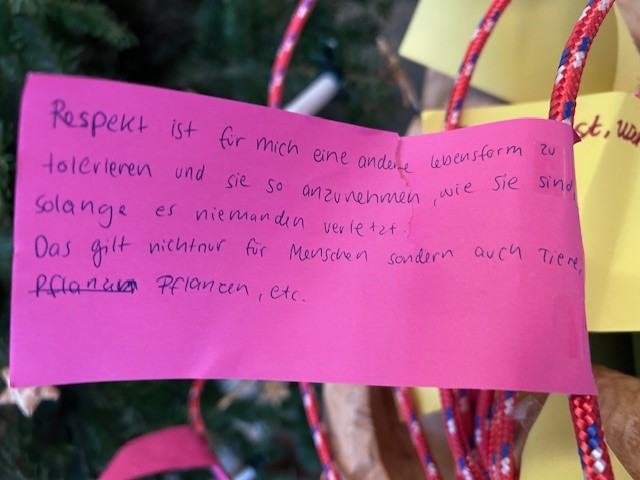 Respekt ist für mich eine andere lebensform zu
tolerieren und sie so anzunehmen, wie sie sind,
solange es niemanden verletzt.
Das gilt nichtnur für Menschen sondern auch Tiere,
Pflanzen Pflanzen, etc.